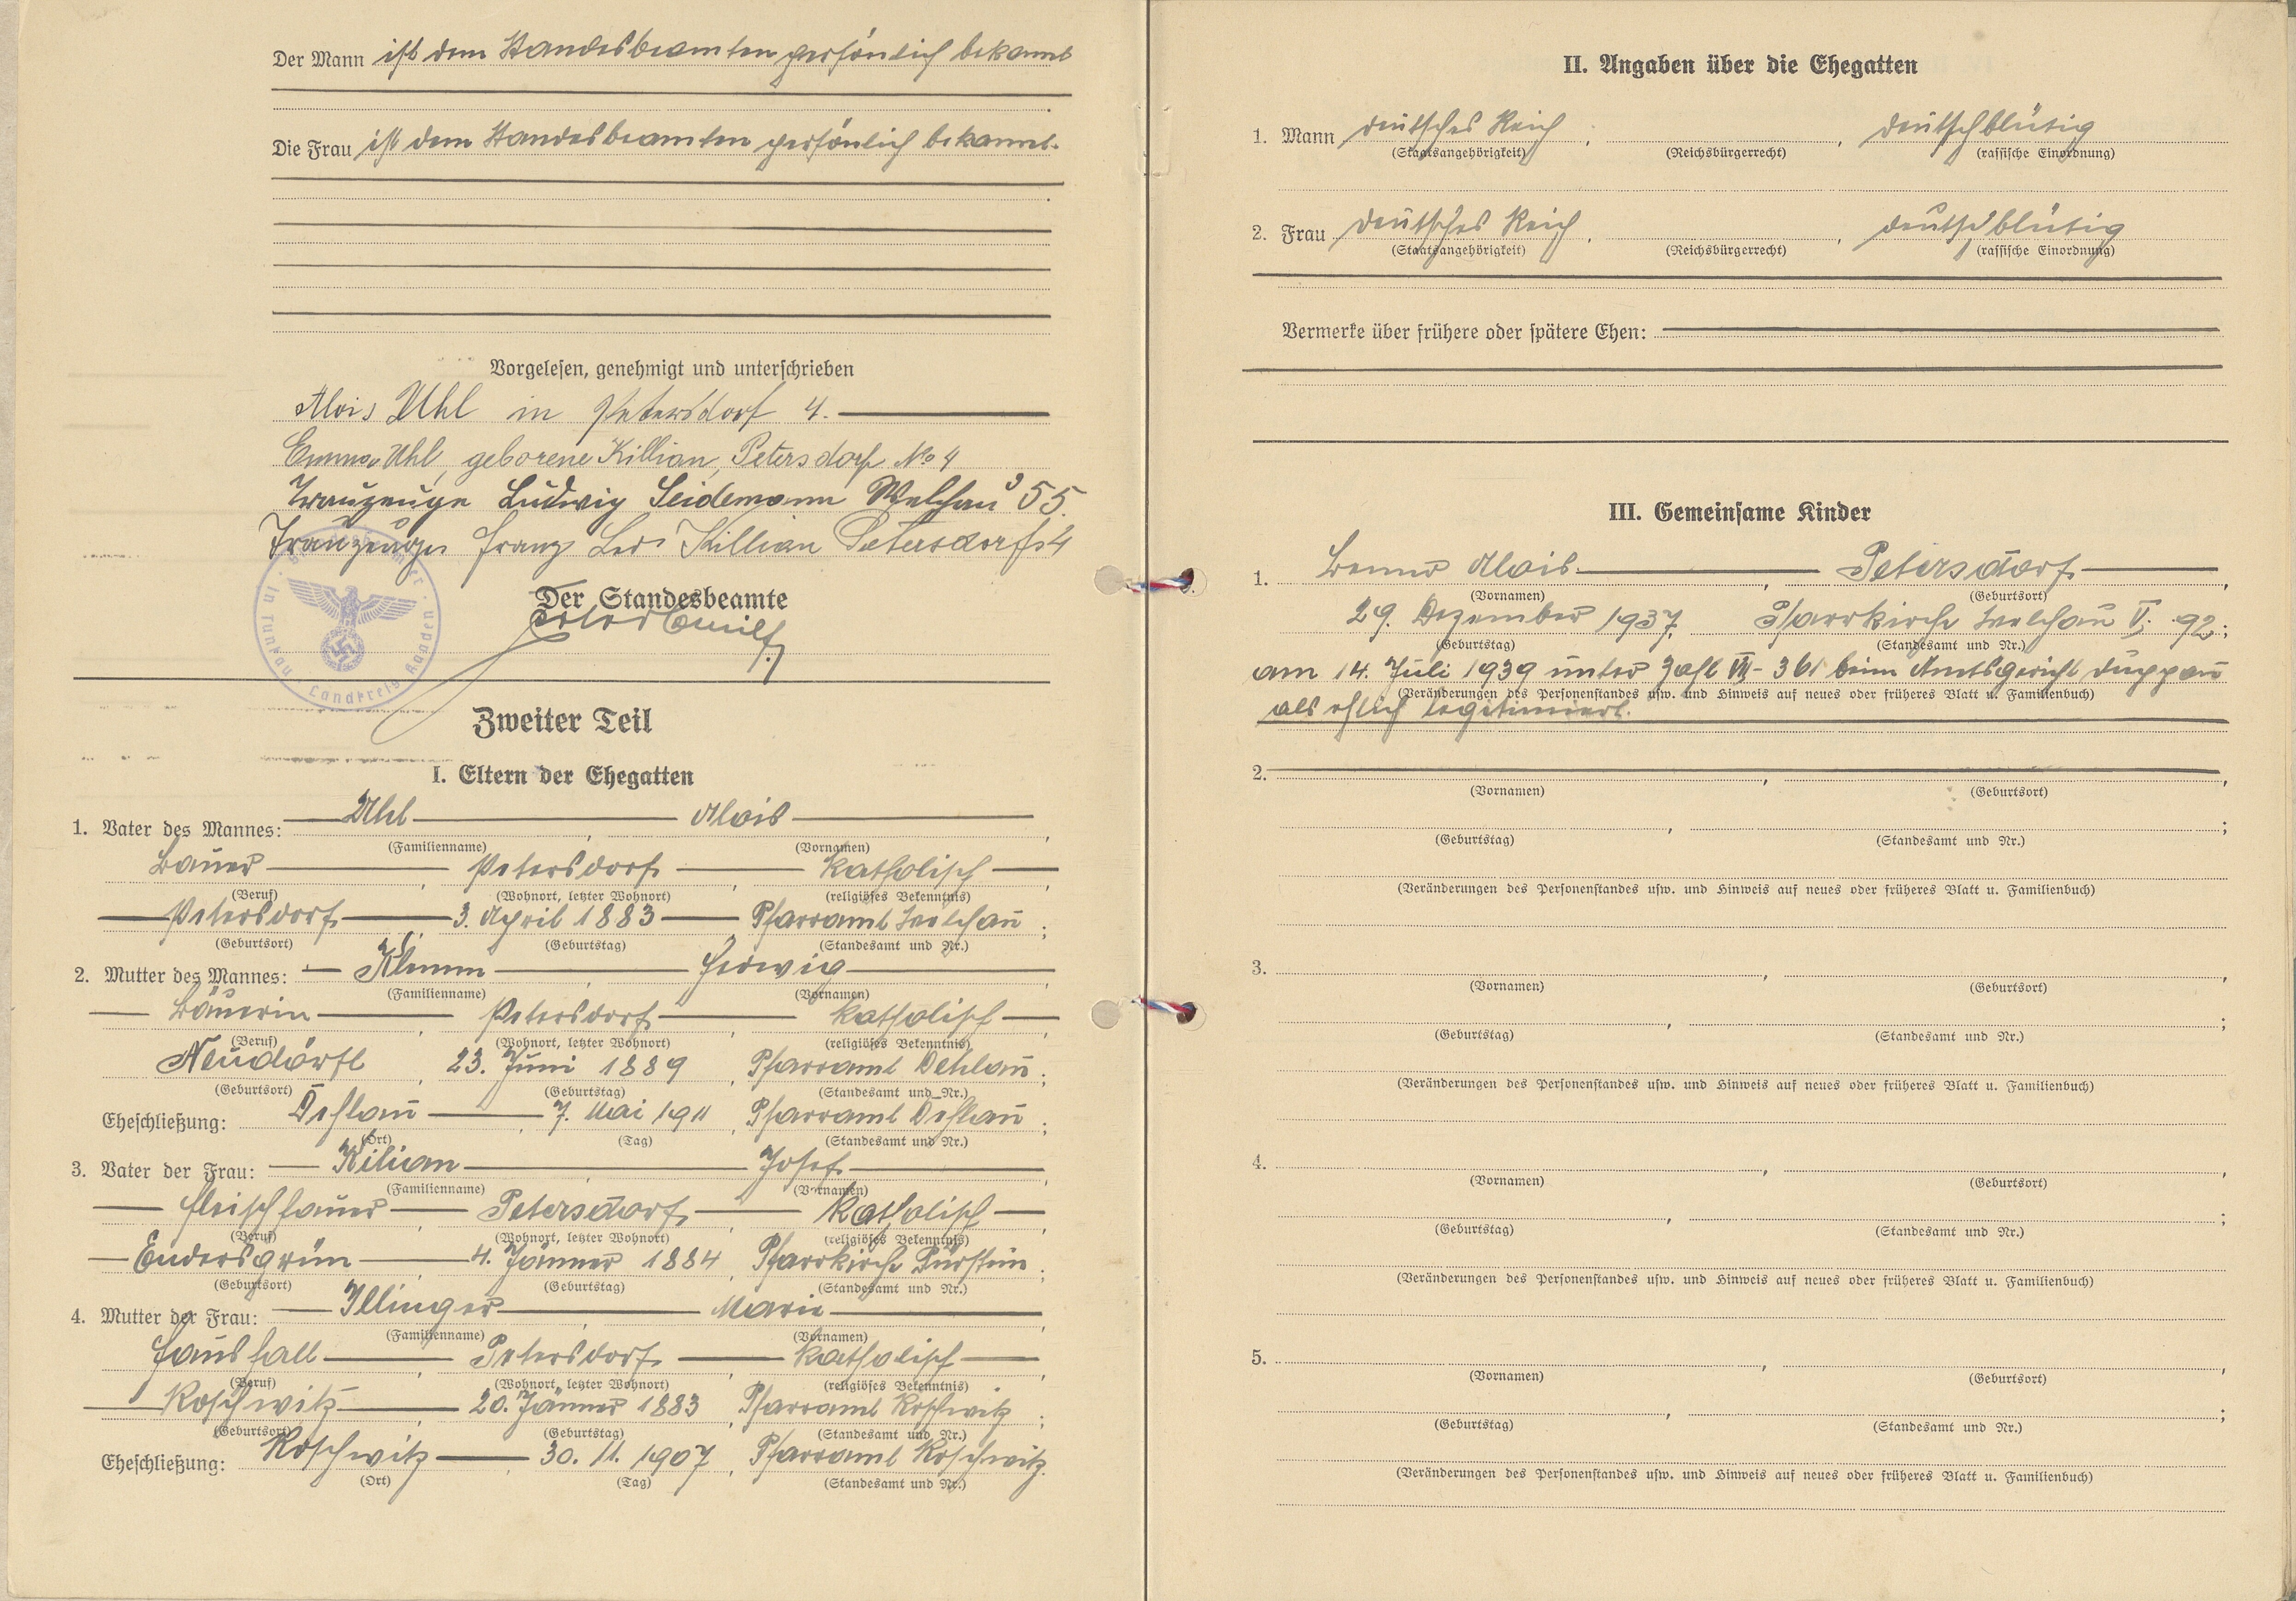 Der Mann ist dem Standesbeamten persönlich bekannt
Die Frau ist dem Standesbeamten persönlich bekannt.
Vorgelesen, genehmigt und unterschrieben
Alois Uhl in Petersdorf 4.
Emma Uhl, geborene Killian, Petersdorf No 4
Trauzeuge Ludwig Seidemann Welchau 55.
Trauzeuge Franz Leo Killian Petersdorf 4
Der Standesbeamte
in Tunkau · Landkreis Kaaden
Zweiter Teil
I. Eltern der Ehegatten
1. Vater des Mannes: Uhl, Alois,
(Familienname) (Vornamen)
Bauer, Petersdorf, katholisch,
(Beruf) (Wohnort, letzter Wohnort) (religiöses Bekenntnis)
Petersdorf, 3. April 1883, Pfarramt Welchau;
(Geburtsort) (Geburtstag) (Standesamt und Nr.)
2. Mutter des Mannes: Klemm, Hedwig,
(Familienname) (Vornamen)
Bäuerin, Petersdorf, katholisch,
(Beruf) (Wohnort, letzter Wohnort) (religiöses Bekenntnis)
Neudörfl, 23. Juni 1889, Pfarramt Dehlau;
(Geburtsort) (Geburtstag) (Standesamt und Nr.)
Eheschließung: Dehlau, 7. Mai 1911, Pfarramt Dehlau;
(Ort) (Tag) (Standesamt und Nr.)
3. Vater der Frau: Kilian, Josef,
(Familienname) (Vornamen)
Fleischhauer, Petersdorf, katholisch,
(Beruf) (Wohnort, letzter Wohnort) (religiöses Bekenntnis)
Endersgrün, 4. Jänner 1884, Pfarrkirche Pürstein;
(Geburtsort) (Geburtstag) (Standesamt und Nr.)
4. Mutter der Frau: Illinger, Marie,
(Familienname) (Vornamen)
Haushalt, Petersdorf, katholisch,
(Beruf) (Wohnort, letzter Wohnort) (religiöses Bekenntnis)
Roschwitz, 20. Jänner 1883, Pfarramt Roschwitz;
(Geburtsort) (Geburtstag) (Standesamt und Nr.)
Eheschließung: Roschwitz, 30. 11. 1907, Pfarramt Roschwitz.
(Ort) (Tag) (Standesamt und Nr.)
II. Angaben über die Ehegatten
1. Mann deutsches Reich, , deutschblütig
(Staatsangehörigkeit) (Reichsbürgerrecht) (rassische Einordnung)
2. Frau deutsches Reich, , deutschblütig
(Staatsangehörigkeit) (Reichsbürgerrecht) (rassische Einordnung)
Vermerke über frühere oder spätere Ehen:
III. Gemeinsame Kinder
1. Benno Alois, Petersdorf,
(Vornamen) (Geburtsort)
29. Dezember 1937, Pfarrkirche Welchau V; 92;
(Geburtstag) (Standesamt und Nr.)
am 14. Juli 1939 unter Zahl VII - 361 beim Amtsgericht Duppau
(Veränderungen des Personenstandes usw. und Hinweis auf neues oder früheres Blatt u. Familienbuch)
als ehlich legitimiert.
2. , ,
(Vornamen) (Geburtsort)
, ;
(Geburtstag) (Standesamt und Nr.)
(Veränderungen des Personenstandes usw. und Hinweis auf neues oder früheres Blatt u. Familienbuch)
3. , ,
(Vornamen) (Geburtsort)
, ;
(Geburtstag) (Standesamt und Nr.)
(Veränderungen des Personenstandes usw. und Hinweis auf neues oder früheres Blatt u. Familienbuch)
4. , ,
(Vornamen) (Geburtsort)
, ;
(Geburtstag) (Standesamt und Nr.)
(Veränderungen des Personenstandes usw. und Hinweis auf neues oder früheres Blatt u. Familienbuch)
5. , ,
(Vornamen) (Geburtsort)
, ;
(Geburtstag) (Standesamt und Nr.)
(Veränderungen des Personenstandes usw. und Hinweis auf neues oder früheres Blatt u. Familienbuch)